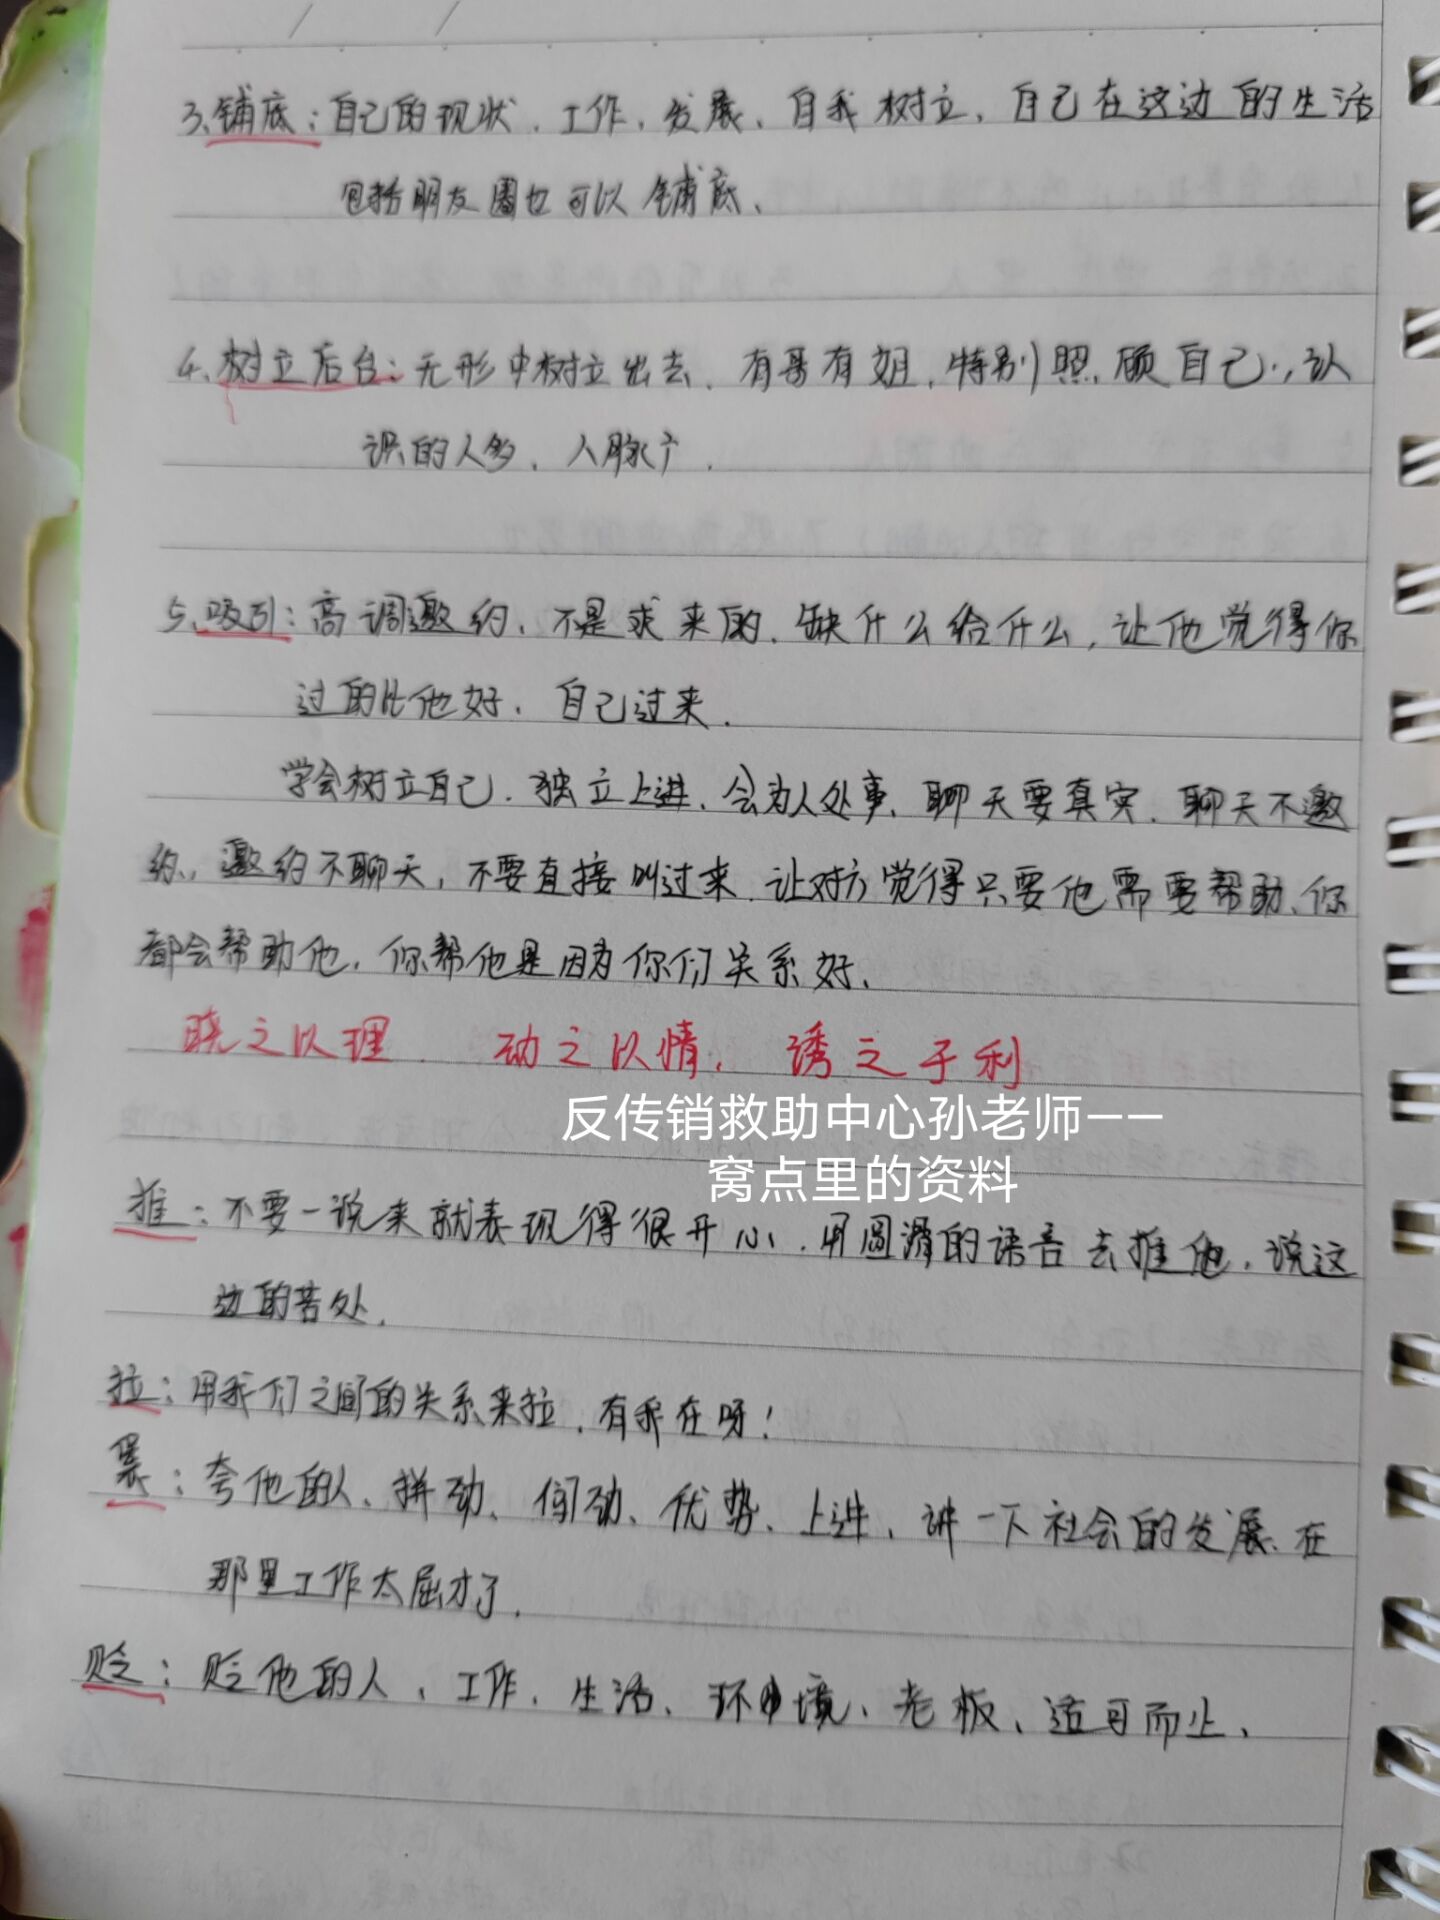 3、铺底：自己的现状、工作、发展、自我树立，自己在这边的生活
包括朋友圈也可以铺底、
4、树立后台：无形中树立出去、有哥有姐，特别照顾自己、认
识的人多、人脉广、
5、吸引：高调邀约、不是求来的、缺什么给什么，让他觉得你
过的比他好、自己过来、
学会树立自己、独立上进、会为人处事、聊天要真实、聊天不邀
约、邀约不聊天，不要直接叫过来、让对方觉得只要他需要帮助、你
都会帮助他，你帮他是因为你们关系好、
晓之以理、动之以情，诱之于利
反传销救助中心孙老师——
窝点里的资料
推：不要一说来就表现得很开心、用圆滑的语言去推他，说这
边的苦处、
拉：用我们之间的关系来拉、有我在呀！
褒：夸他的人、拼劲、闯劲、优势、上进、讲一下社会的发展、在
那里工作太屈才了、
贬：贬他的人、工作、生活、环境、老板、适可而止、